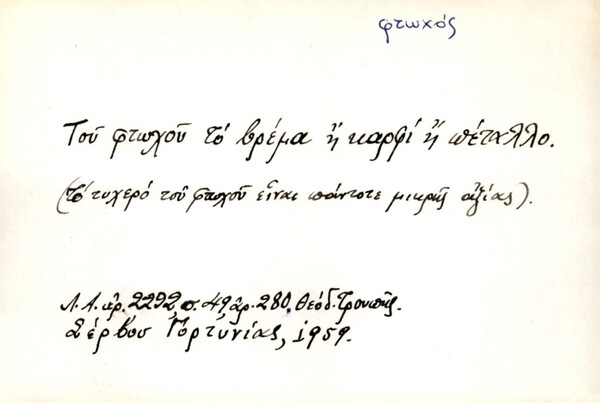 φτωχός
Τοῦ φτωχοῦ τὸ βρέμα ἤ καρφί ἤ πέταλλο.
(τὸ τυχερό τοῦ φτωχοῦ εἶναι πάντοτε μικρῆς ἀξίας).
Λ.Α. ἀρ. 2292, σ. 49, ἀρ. 280, Θεόδ. Τρουπῆς.
Σέρβου Γορτυνίας, 1959.